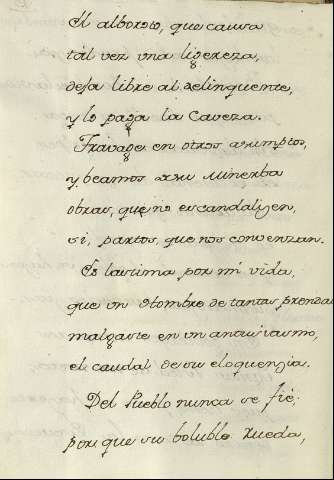 El alboroto, que causa
tal vez una ligereza,
deja libre al delinquente,
y lo paga la Caveza.
Travage en otros asumptos,
y beamos a su Minerba
obras, que no escandalizen,
si, partos, que nos convenzan.
Es lastima por mi vida,
que un Hombre de tantas prendas
malgaste en un
el caudal de su eloquenzia.
Del Pueblo nunca se fie,
por que su boluble rueda,